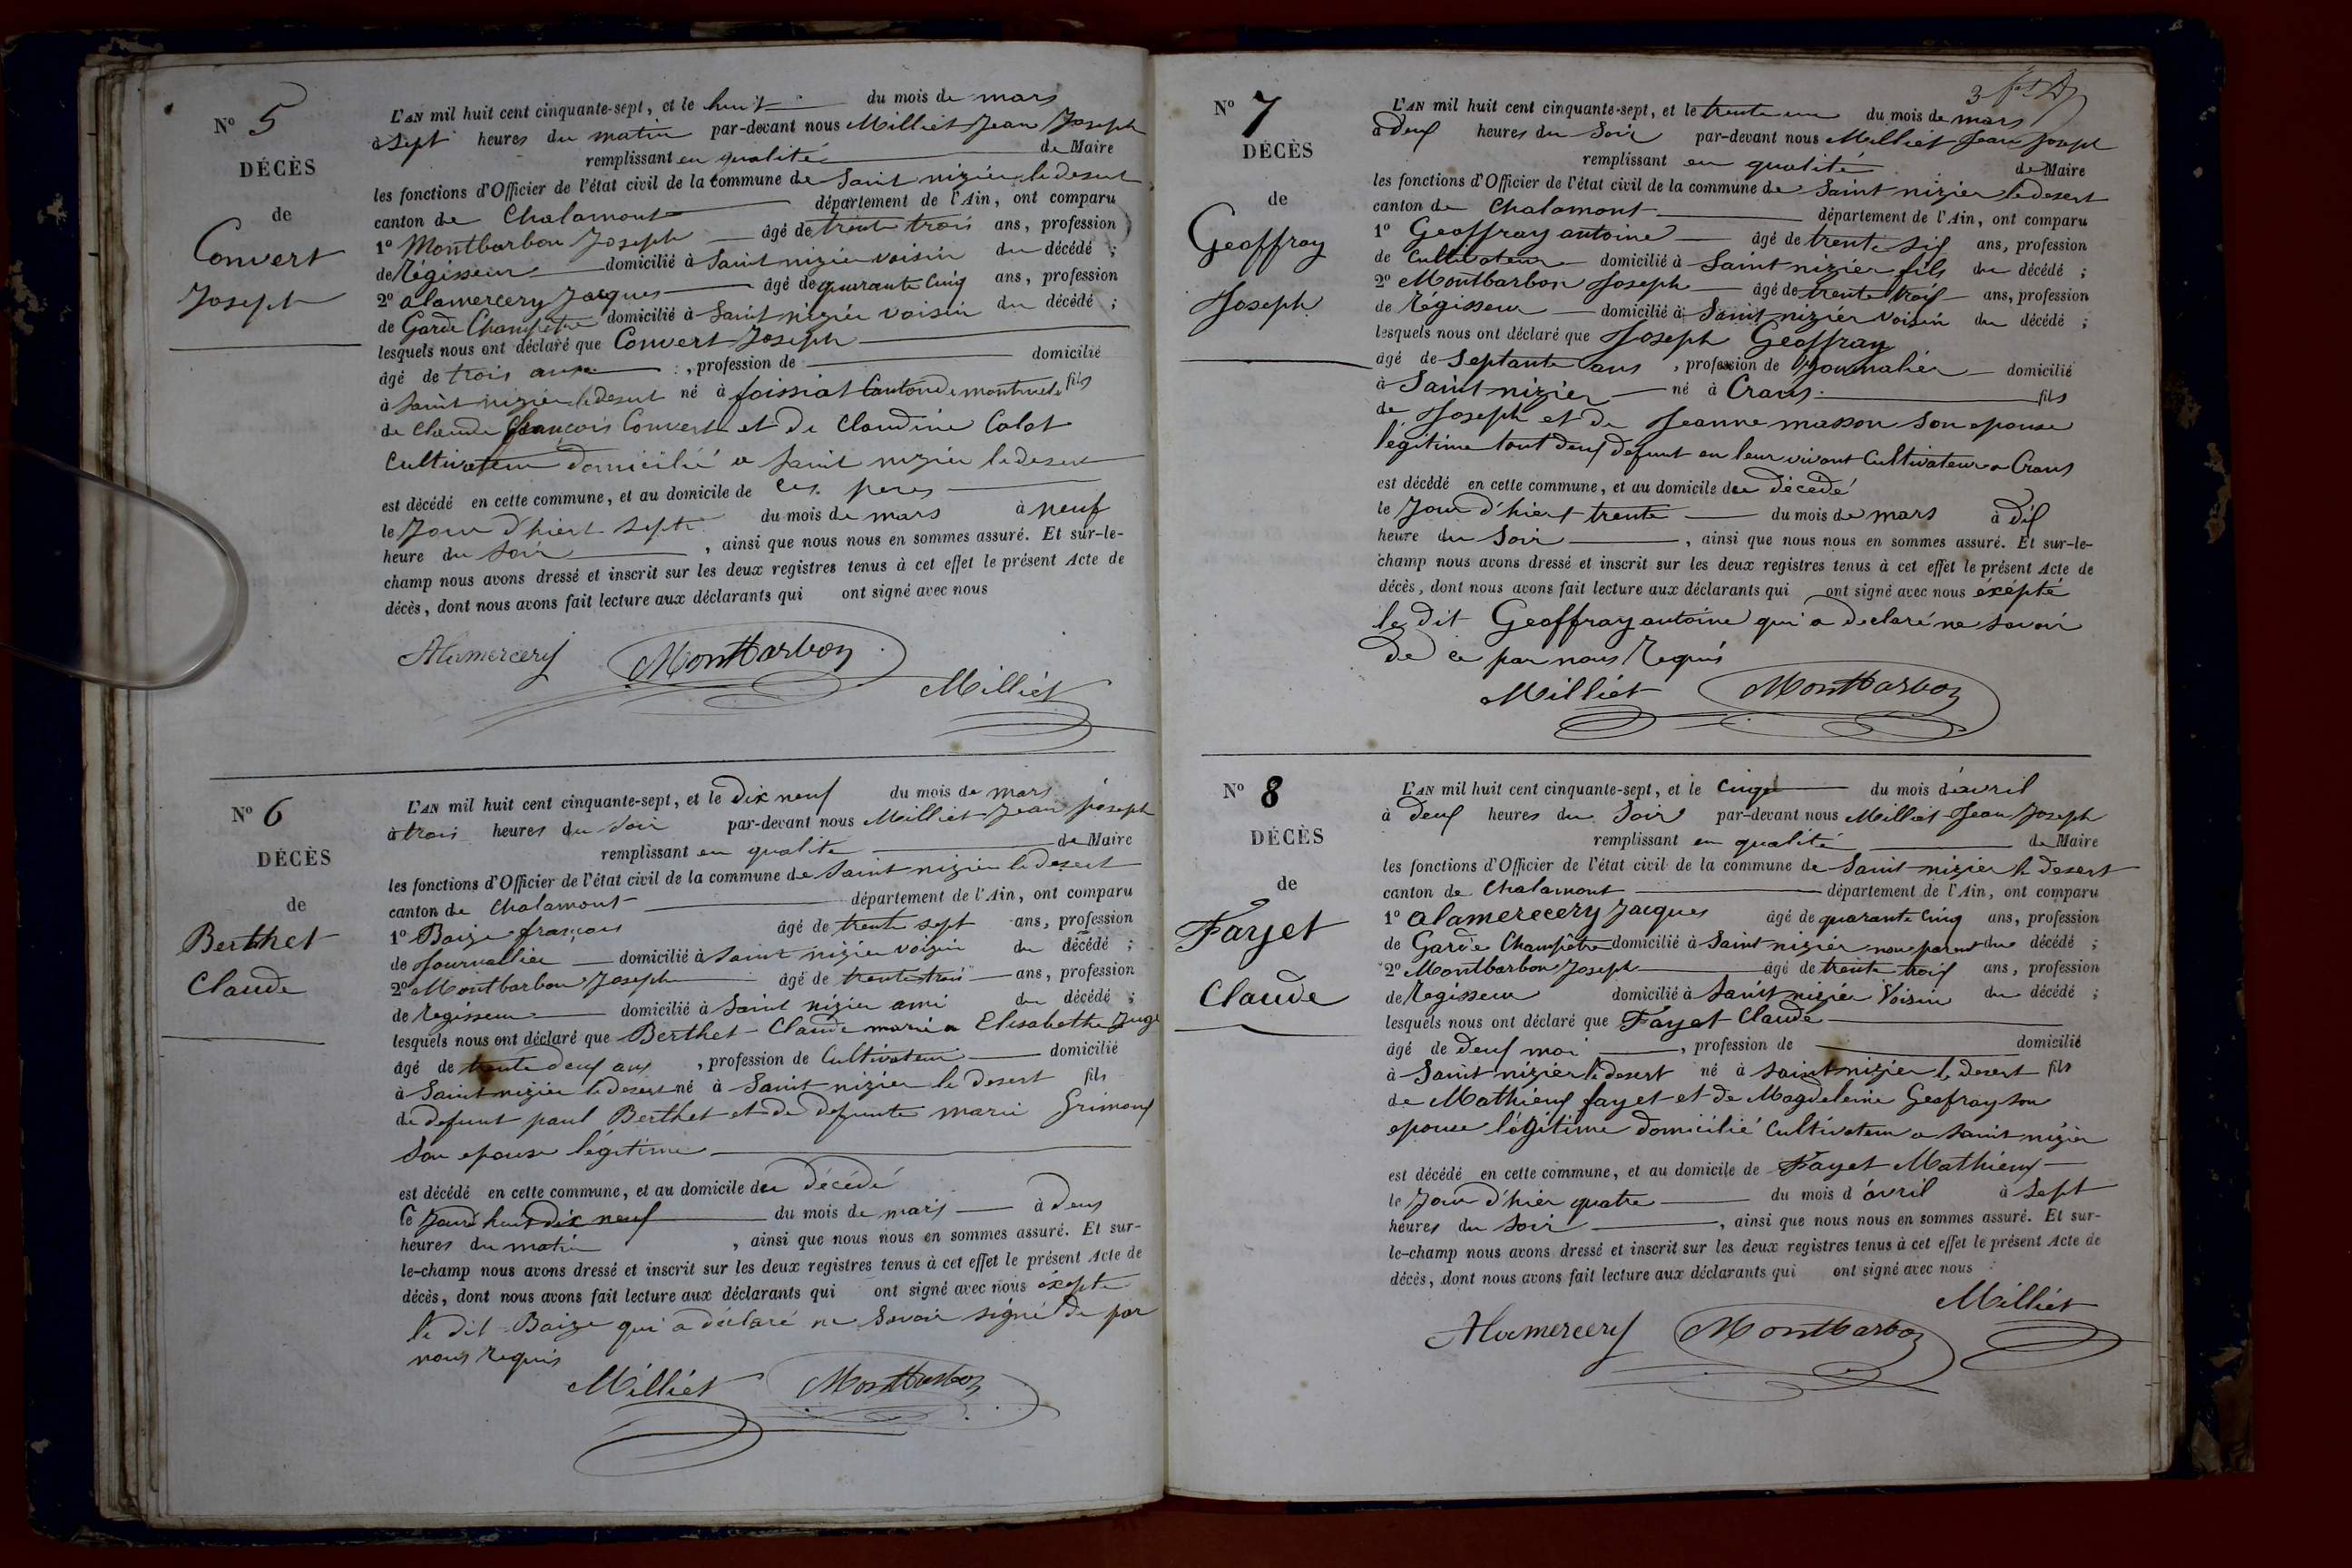 N° 5
DÉCÈS
de
Convert
Joseph
L'AN mil huit cent cinquante-sept, et le huit du mois de mars
à sept heures du matin par-devant nous Milliet Jean Joseph
remplissant en qualité de Maire
les fonctions d'Officier de l'état civil de la commune de Saint nizier le desert
canton de Chalamont département de l'Ain, ont comparu
1° Montbarbon Joseph âgé de trente trois ans, profession
de Régisseur domicilié à Saint nizier voisin du décédé ;
2° alamercery Jacques âgé de quarante cinq ans, profession
de Garde Champêtre domicilié à Saint nizier voisin du décédé ;
lesquels nous ont déclaré que Convert Joseph
âgé de trois ans , profession de domicilié
à Saint nizier le desert né à foissiat Canton de montrevel fils
de Claude françois Convert et de Claudine Calot
Cultivateur domicilié a Saint nizier le desert
est décédé en cette commune, et au domicile de ces peres
le Jour d'hier sept du mois de mars à neuf
heure du Soir , ainsi que nous nous en sommes assuré. Et sur-le-
champ nous avons dressé et inscrit sur les deux registres tenus à cet effet le présent Acte de
décès, dont nous avons fait lecture aux déclarants qui ont signé avec nous
Alamercery Montbarbon
Milliet
N° 6
DÉCÈS
de
Berthet
Claude
L'AN mil huit cent cinquante-sept, et le dix neuf du mois de mars
à trois heures du Soir par-devant nous Milliet Jean Joseph
remplissant en qualité de Maire
les fonctions d'Officier de l'état civil de la commune de Saint nizier le desert
canton de Chalamont département de l'Ain, ont comparu
1° Baize françois âgé de trente sept ans, profession
de Journallier domicilié à Saint nizier voizin du décédé ;
2° Montbarbon Joseph âgé de trente trois ans, profession
de regisseur domicilié à Saint nizier ami du décédé ;
lesquels nous ont déclaré que Berthet Claude marié a Elisabethe Juge
âgé de trente deux ans , profession de Cultivateur domicilié
à Saint nizier le desert né à Saint nizier le desert fils
de defunt paul Berthet et de defunte marie
Son epouse légitime
est décédé en cette commune, et au domicile du décédé
le Jourd'hui dix neuf du mois de mars à deux
heures du matin , ainsi que nous nous en sommes assuré. Et sur-
le-champ nous avons dressé et inscrit sur les deux registres tenus à cet effet le présent Acte de
décès, dont nous avons fait lecture aux déclarants qui ont signé avec nous éxepté
le dit Baize qui a déclaré ne Savoir signé de par
nous requis
Milliet Montbarbon
N° 7
DÉCÈS
de
Geoffray
Joseph
L'AN mil huit cent cinquante-sept, et le trente un du mois de mars
à deux heures du Soir par-devant nous Milliet Jean Joseph
remplissant en qualité de Maire
les fonctions d'Officier de l'état civil de la commune de Saint nizier le desert
canton de Chalamont département de l'Ain, ont comparu
1° Geoffray antoine âgé de trente six ans, profession
de Cultivateur domicilié à Saint nizier fils du décédé ;
2° Montbarbon Joseph âgé de trente trois ans, profession
de régisseur domicilié à Saint nizier voisin du décédé ;
lesquels nous ont déclaré que Joseph Geoffray
âgé de Septante ans , profession de Journalier domicilié
à Saint nizier né à Crans fils
de Joseph et de Jeanne masson son epouse
légitime tout deux défunt en leur vivant Cultivateur a Crans
est décédé en cette commune, et au domicile du décédé
le Jour d'hier trente du mois de mars à dix
heure du Soir , ainsi que nous nous en sommes assuré. Et sur-le-
champ nous avons dressé et inscrit sur les deux registres tenus à cet effet le présent Acte de
décès, dont nous avons fait lecture aux déclarants qui ont signé avec nous éxépté
le dit Geoffray antoine qui a declaré ne Savoir
de ce par nous Requis
Milliet Montbarbon
N° 8
DÉCÈS
de
Fayet
Claude
L'AN mil huit cent cinquante-sept, et le cinq du mois d'avril
à deux heures du Soir par-devant nous Milliet Jean Joseph
remplissant en qualité de Maire
les fonctions d'Officier de l'état civil de la commune de Saint nizier le desert
canton de Chalamont département de l'Ain, ont comparu
1° alamerecery Jacques âgé de quarante cinq ans, profession
de Garde Champêtre domicilié à Saint nizier non parent du décédé ;
2° Montbarbon Joseph âgé de trente trois ans, profession
de Regisseur domicilié à Saint nizier Voisin du décédé ;
lesquels nous ont déclaré que Fayet Claude
âgé de deux moi , profession de domicilié
à Saint nizier le desert né à Saint nizier le desert fils
de Mathieux fayet et de Magdeleine Geofray son
epouse légitime domicilié Cultivateur a Saint nizier
est décédé en cette commune, et au domicile de Fayet Mathieux
le Jour d'hier quatre du mois d'avril à Sept
heures du Soir , ainsi que nous nous en sommes assuré. Et sur-
le-champ nous avons dressé et inscrit sur les deux registres tenus à cet effet le présent Acte de
décès, dont nous avons fait lecture aux déclarants qui ont signé avec nous
Milliet
Alamercery Montbarbon